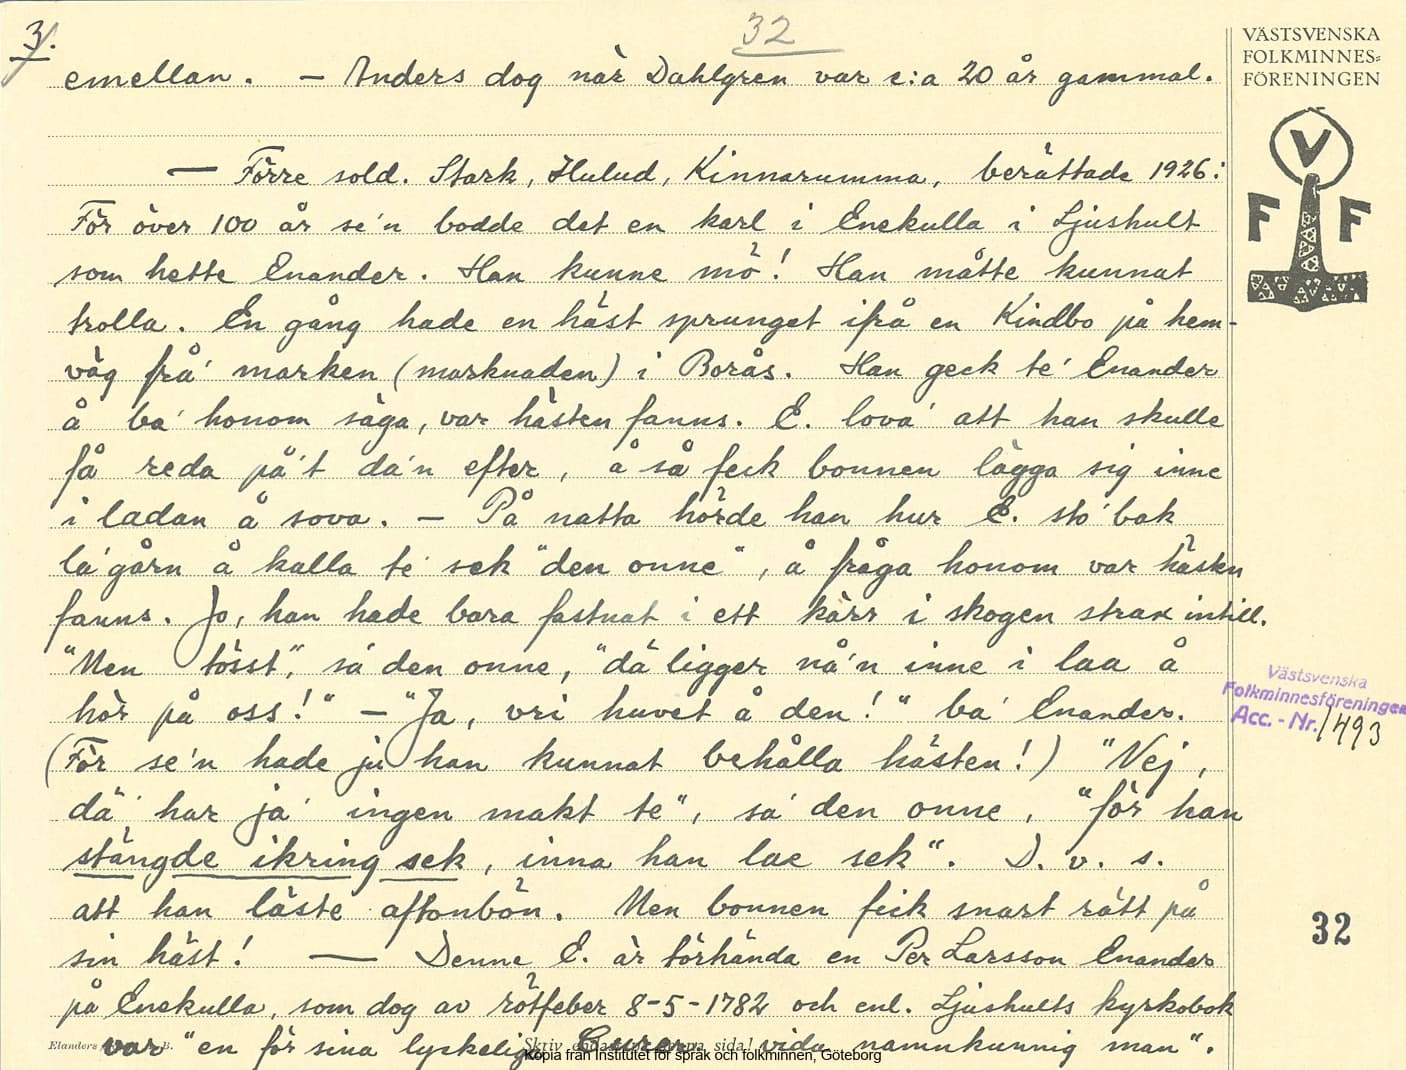 3.
32
emellan. – Anders dog när Dahlgren var c:a 20 år gammal.
— Förre sold. Stark, Hulud, Kinnarumma, berättade 1926:
För över 100 år se'n bodde det en karl i Enekulla i Ljushult
som hette Enander. Han kunne mö! Han måtte kunnat
trolla. En gång hade en häst sprunget ifrå en Kindbo på hem-
väg frå' marken (marknaden) i Borås. Han geck te' Enander
å ba' honom säga, var hästen fanns. E. lova' att han skulle
få reda på't da'n efter, å så feck bonnen lägga sig inne
i ladan å sova. – På natta hörde han hur E. sto' bak
la'gårn å kalla te' sek "den onne", å fråga honom var hästen
fanns. Jo, han hade bara fastnat i ett kärr i skogen strax intill.
"Men tösst", sa' den onne, "dä ligger nå'n inne i laa å
hör på oss!" – "Ja, vri huvet å den!" ba' Enander.
(För se'n hade ju han kunnat behålla hästen!) "Nej,
dä' har ja' ingen makt te", sa' den onne, "för han
stängde ikring sek, inna han lae sek". D. v. s.
att han läste aftonbön. Men bonnen fick snart rätt på
sin häst! — Denne E. är törhända en Per Larsson Enander
på Enekulla, som dog av rötfeber 8-5-1782 och enl. Ljushults kyrkobok
var "en för sina lyckelige Curer vida namnkunnig man".
VÄSTSVENSKA
FOLKMINNES=
FÖRENINGEN
V
F F
Västsvenska
Folkminnesföreningen
Acc. - Nr. 1493
32
Skriv endast på denna sida!
Kopia från Institutet för språk och folkminnen, Göteborg